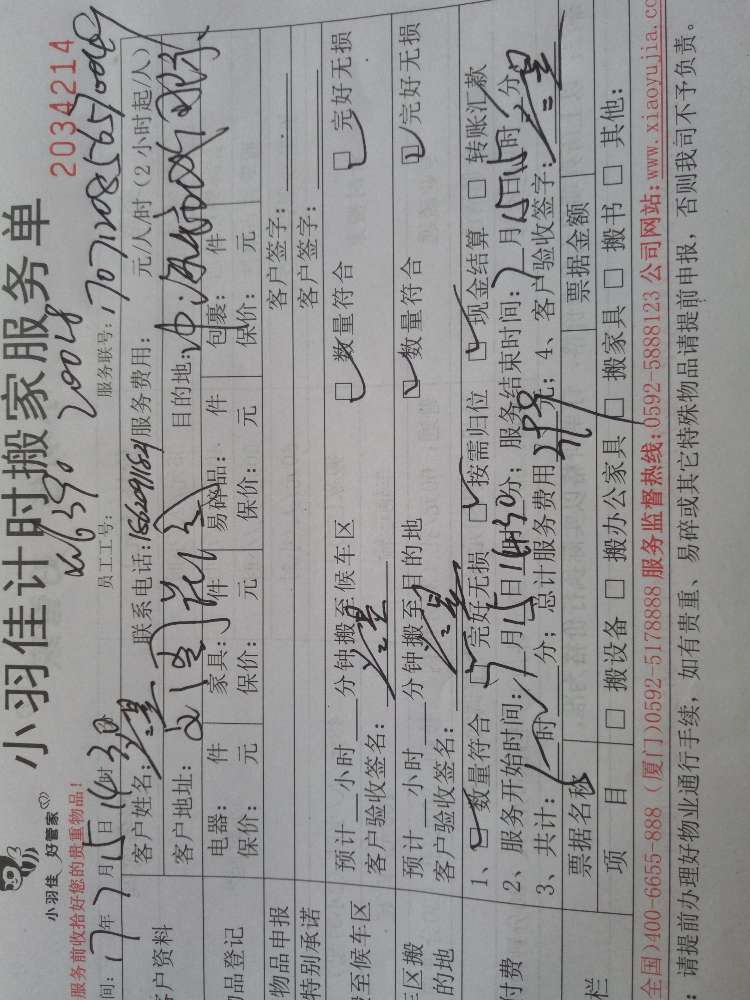 小羽佳 好管家
小羽佳计时搬家服务单
2034214
服务前收拾好您的贵重物品!
员工工号:
服务联号: 17071208565700489
间: 17年 7月 15日 14时 30分
客户资料
客户姓名:
联系电话:
服务费用: 元/人/时(2小时起/人)
客户地址:
目的地:
物品登记
电器: 件 家具: 件 易碎品: 件 包裹: 件
保价: 元 保价: 元 保价: 元 保价: 元
物品申报
客户签字:
特别承诺
客户签字:
搬至候车区
预计 小时 分钟搬至候车区 数量符合 完好无损
客户验收签名:
车区搬
的地
预计 小时 分钟搬至目的地 数量符合 完好无损
客户验收签名:
付费
1、 数量符合 完好无损 按需归位 现金结算 转账汇款
2、服务开始时间: 7月 15日 14时 30分; 服务结束时间: 7月 15日 15时 分
3、共计: 1时 分; 总计服务费用 元; 4、客户验收签字:
栏
票据名称 票据金额
项 目
搬设备 搬办公家具 搬家具 搬书 其他:
全国)400-6655-888 (厦门)0592-5178888 服务监督热线:0592-5888123 公司网站:www.xiaoyujia.co
: 请提前办理好物业通行手续, 如有贵重、易碎或其它特殊物品请提前申报, 否则我司不予负责。